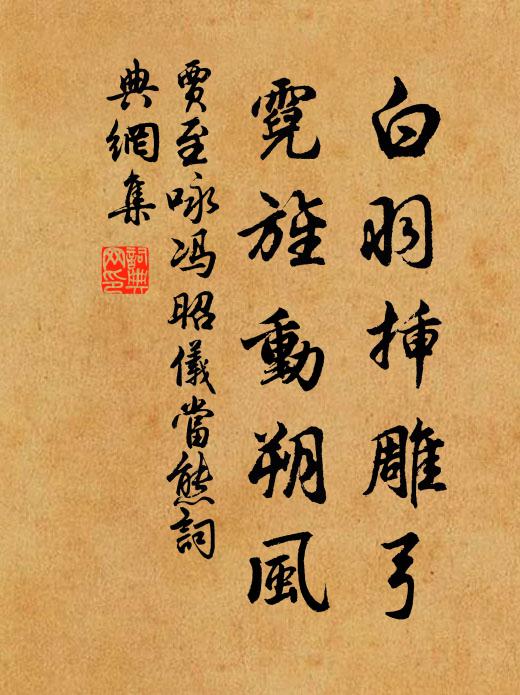 白羽插雕弓
霓旌動朔風
賈至咏冯昭儀當熊詞
典網集
詞典網印